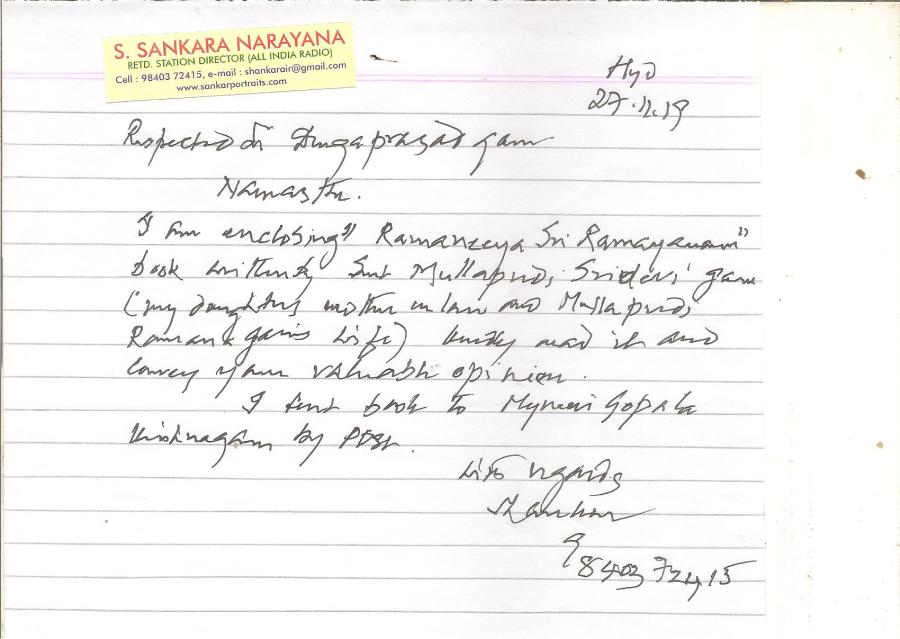 S. SANKARA NARAYANA
RETD. STATION DIRECTOR (ALL INDIA RADIO)
Cell : 98403 72415, e-mail : shankarair@gmail.com
www.sankarportraits.com
Hyd
27.11.19
Respected Dr Durgaprasad garu
Namaste.
I am enclosing "Ramaneeya Sri Ramayanam"
book written by Smt Mullapudi Sridevi garu
(my daughters mother in law and Mullapudi
Ramana garus wife) kindly read it and
convey your valuable opinion.
I sent book to Myneni Gopala
Krishnagaru by post.
With regards
Shankar
98403 72415